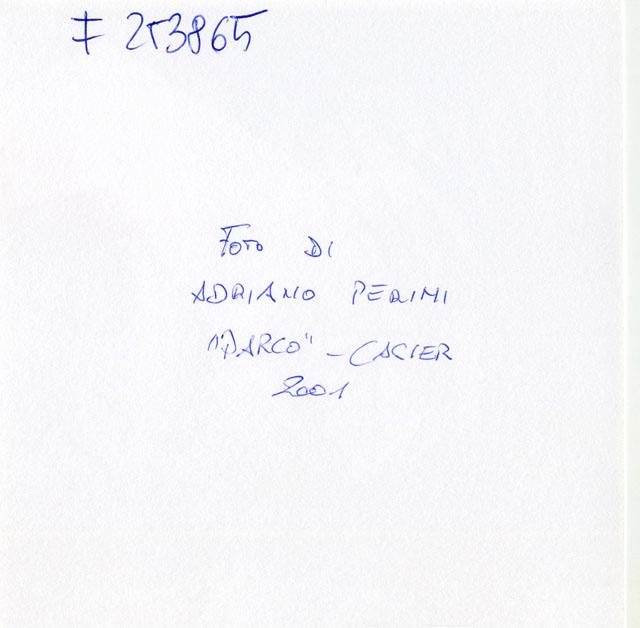 F 253865
Foto DI
ADRIANO PERINI
"PARCO" - CASIER
2001